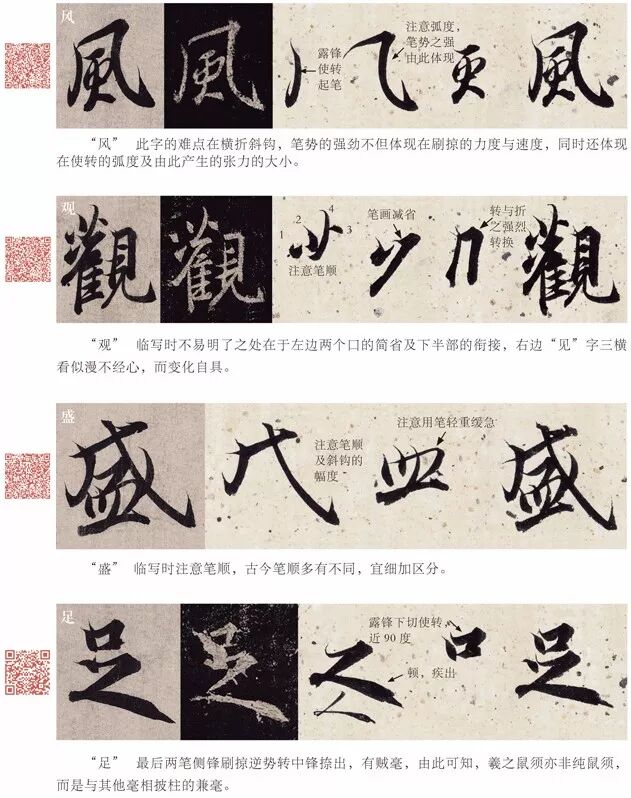 风
風
風
露锋
使转
起笔
注意弧度，
笔势之强
由此体现
風
“风” 此字的难点在横折斜钩，笔势的强劲不但体现在刷掠的力度与速度，同时还体现
在使转的弧度及由此产生的张力的大小。
观
觀
觀
1
2
4
3
注意笔顺
笔画减省
转与折
之强烈
转换
觀
“观” 临写时不易明了之处在于左边两个口的简省及下半部的衔接，右边“见”字三横
看似漫不经心，而变化自具。
盛
盛
注意笔顺
及斜钩的
幅度
注意用笔轻重缓急
盛
“盛” 临写时注意笔顺，古今笔顺多有不同，宜细加区分。
足
足
足
露锋下切使转，
近90度
顿，疾出
足
“足” 最后两笔侧锋刷掠逆势转中锋捺出，有贼毫，由此可知，羲之鼠须亦非纯鼠须，
而是与其他毫相披柱的兼毫。